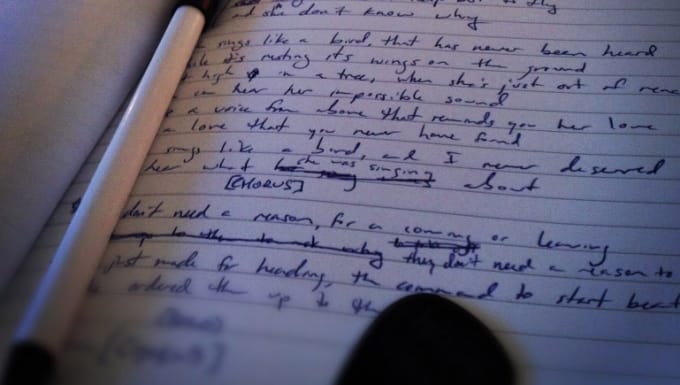 and she don't know why
sings like a bird, that has never been heard
it's resting its wings on the ground
high in a tree, when she's just out of
can hear her impossible sound
a voice from above that reminds you her love
a love that you never have found
sings like a bird, and I never deserved
hear what she was singing about
[CHORUS]
don't need a reason, for a coming or leaving
they don't need a reason to
just made for heading, the command to start
ordered them up to the